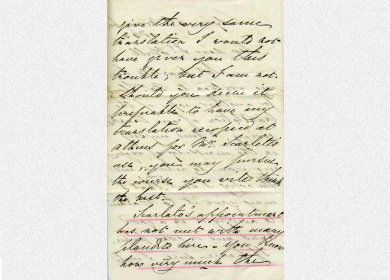 give the very same
translation I would not
have given you this
trouble; but I am not.
Should you deem it
preferable to have my
translation recopied at
Athens for Mr. Scarlett's
use, you may pursue
the course you will think
the best.
Scarlett's appointment
was not met with many
plaudits here. You know
how very much the